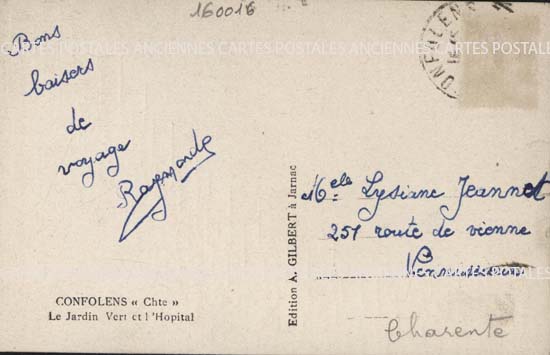 160016
CONFOLENS
CARTES POSTALES ANCIENNES CARTES POSTALES ANCIENNES CARTES POSTALES
Bons
baisers
de
voyage
Raymonde
Edition A. GILBERT à Jarnac
Melle Lysiane Jeannot
257 route de vienne
CONFOLENS « Chte »
Le Jardin Vert et l'Hopital
Charente